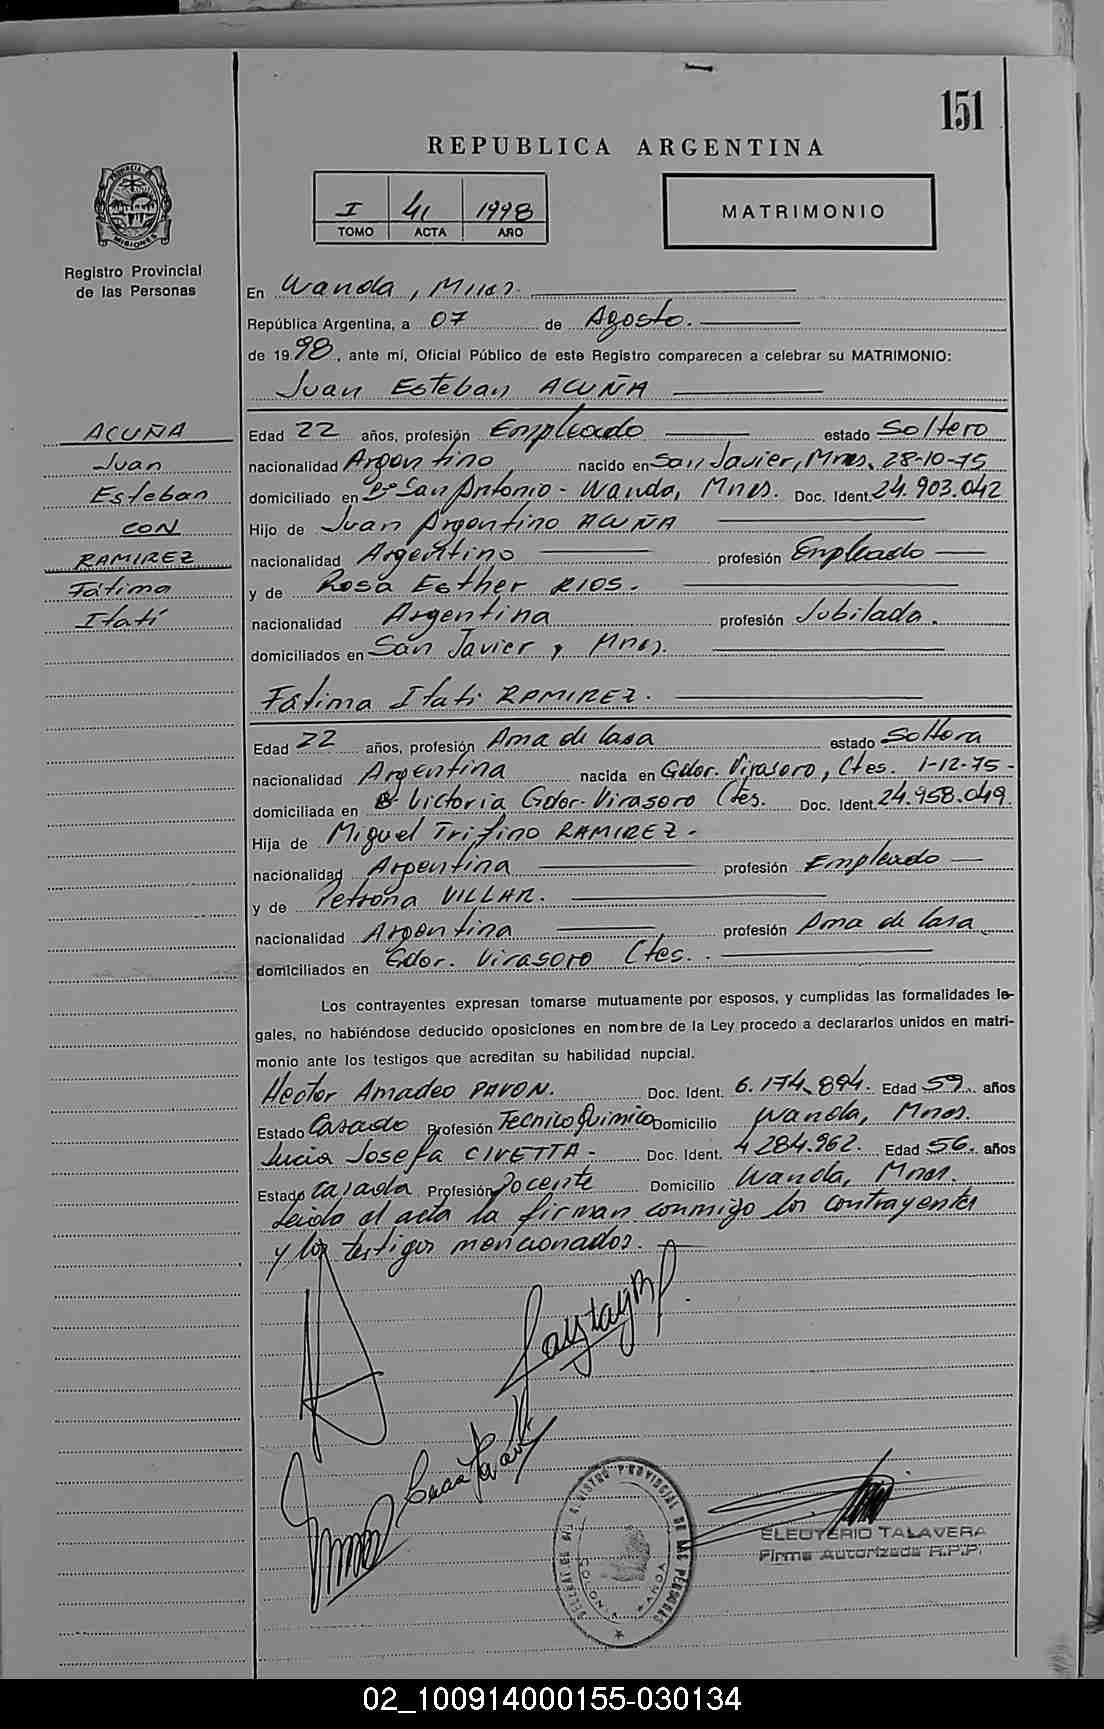 151
REPUBLICA ARGENTINA
I 41 1998
TOMO ACTA AÑO
MATRIMONIO
PROVINCIA DE MISIONES
Registro Provincial
de las Personas
En Wanda, Mnes.
República Argentina, a 07 de Agosto.
de 1998, ante mí, Oficial Público de este Registro comparecen a celebrar su MATRIMONIO:
Juan Esteban ACUÑA
ACUÑA
Juan
Esteban
CON
RAMIREZ
Fátima
Itatí
Edad 22 años, profesión Empleado estado Soltero
nacionalidad Argentino nacido en San Javier, Mnes. 28-10-75
domiciliado en Bº San Antonio - Wanda, Mnes. Doc. Ident. 24.903.042
Hijo de Juan Argentino ACUÑA
nacionalidad Argentino profesión Empleado
y de Rosa Esther RIOS.
nacionalidad Argentina profesión Jubilada.
domiciliados en San Javier, Mnes.
Fátima Itati RAMIREZ.
Edad 22 años, profesión Ama de Casa estado Soltera
nacionalidad Argentina nacida en Gdor. Virasoro, Ctes. 1-12-75-
domiciliada en Bº Victoria Gdor. Virasoro Ctes. Doc. Ident. 24.958.049.
Hija de Miguel Trifino RAMIREZ.
nacionalidad Argentina profesión Empleado
y de Petrona VILLAR.
nacionalidad Argentina profesión Ama de Casa
domiciliados en Gdor. Virasoro Ctes.
Los contrayentes expresan tomarse mutuamente por esposos, y cumplidas las formalidades le-
gales, no habiéndose deducido oposiciones en nombre de la Ley procedo a declararlos unidos en matri-
monio ante los testigos que acreditan su habilidad nupcial.
Hector Amadeo PAVON. Doc. Ident. 6.174.894. Edad 59 años
Estado Casado Profesión Tecnico Quimico Domicilio Wanda, Mnes.
Lucia Josefa CIVETTA - Doc. Ident. 4284.962. Edad 56. años
Estado Casada Profesión Docente Domicilio Wanda, Mnes.
Leida el acta la firman conmigo los contrayentes
y los testigos mencionados.
REGISTRO PROVINCIAL DE LAS PERSONAS
WANDA
ELEUTERIO TALAVERA
Firma Autorizada R.P.P.
02_100914000155-030134